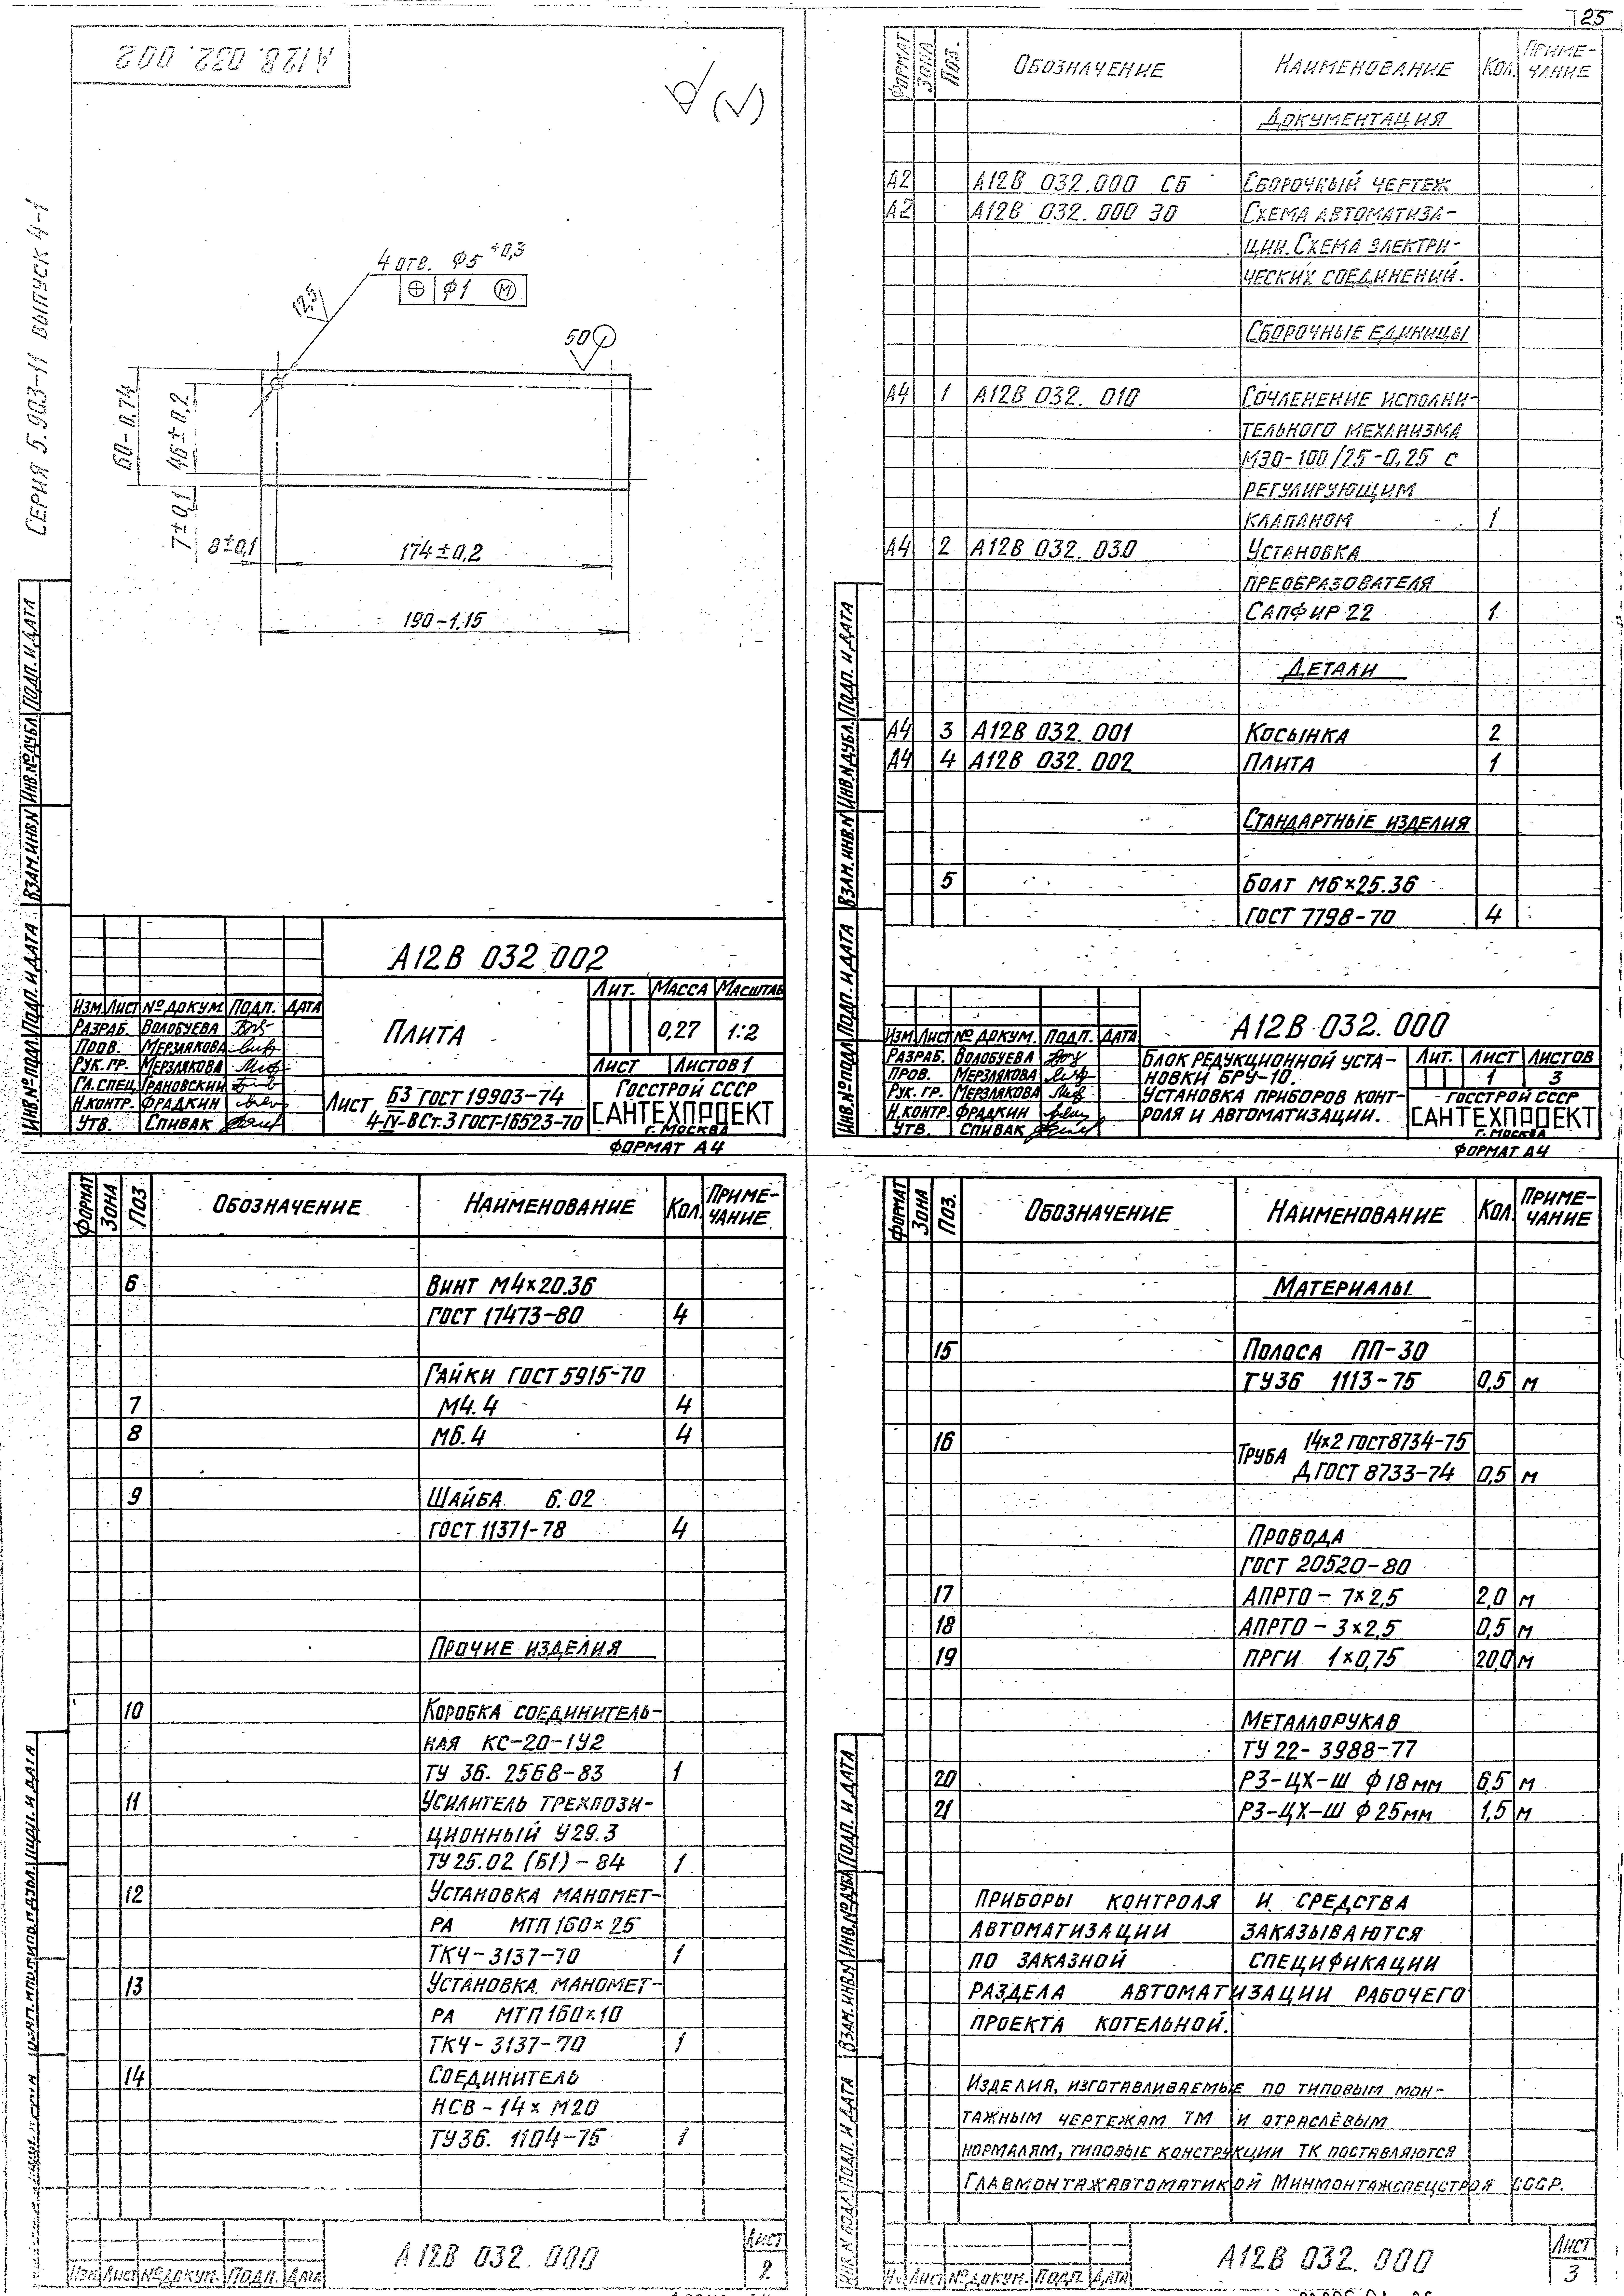 25
А12В. 032. 002
Серия 5.903-11 выпуск 4-1
4 отв. ф5 +0,3
ф1 М
12,5
50
60-0,74
46±0,2
7±0,1
8±0,1
174±0,2
190-1,15
Инв.№подл. Подп. и дата Взам.инв.№ Инв.№дубл. Подп. и дата
А12В 032 002
Изм. Лист № докум. Подп. Дата
Разраб. Волобуева
Пров. Мерзлякова
Рук. гр. Мерзлякова
Гл. спец. Грановский
Н.контр. Фрадкин
Утв. Спивак
Плита
Лит. Масса Масштаб
0,27 1:2
Лист Листов 1
Лист Б3 ГОСТ 19903-74
4-IV-ВСт.3 ГОСТ-16523-70
Госстрой СССР
САНТЕХПРОЕКТ
г. Москва
Формат А4
Формат Зона Поз. Обозначение Наименование Кол. Приме-
чание
Документация
А2 А12В 032.000 СБ Сборочный чертеж
А2 А12В 032.000 ЭО Схема автоматиза-
ции. Схема электри-
ческих соединений.
Сборочные единицы
А4 1 А12В 032. 010 Сочленение исполни-
тельного механизма
МЭО-100/25-0,25 с
регулирующим
клапаном 1
А4 2 А12В 032. 030 Установка
преобразователя
Сапфир 22 1
Детали
А4 3 А12В 032. 001 Косынка 2
А4 4 А12В 032. 002 Плита 1
Стандартные изделия
5 Болт М6×25.36
ГОСТ 7798-70 4
Инв.№подл. Подп. и дата Взам.инв.№ Инв.№дубл. Подп. и дата
А12В 032. 000
Изм. Лист № докум. Подп. Дата
Разраб. Волобуева
Пров. Мерзлякова
Рук. гр. Мерзлякова
Н.контр. Фрадкин
Утв. Спивак
Блок редукционной уста-
новки БРУ-10.
Установка приборов конт-
роля и автоматизации.
Лит. Лист Листов
1 3
Госстрой СССР
САНТЕХПРОЕКТ
г. Москва
Формат А4
Формат Зона Поз Обозначение Наименование Кол. Приме-
чание
6 Винт М4×20.36
ГОСТ 17473-80 4
Гайки ГОСТ 5915-70
7 М4.4 4
8 М6.4 4
9 Шайба 6.02
ГОСТ 11371-78 4
Прочие изделия
10 Коробка соединитель-
ная КС-20-1У2
ТУ 36. 2568-83 1
11 Усилитель трехпози-
ционный У29.3
ТУ 25.02 (Б1)-84 1
12 Установка маномет-
ра МТП 160×25
ТКЧ-3137-70 1
13 Установка маномет-
ра МТП 160×10
ТКЧ-3137-70 1
14 Соединитель
НСВ-14× М20
ТУ36. 1104-75 1
Изм. Лист № докум. Подп. Дата
А12В 032. 000
Лист
2
Формат Зона Поз. Обозначение Наименование Кол. Приме-
чание
Материалы
15 Полоса ПП-30
ТУ36 1113-75 0,5 м
16 Труба 14×2 ГОСТ 8734-75
Д ГОСТ 8733-74 0,5 м
Провода
ГОСТ 20520-80
17 АПРТО-7×2,5 2,0 м
18 АПРТО-3×2,5 0,5 м
19 ПРГИ 1×0,75 20,0 м
Металлорукав
ТУ 22-3988-77
20 РЗ-ЦХ-Ш ф 18 мм 6,5 м
21 РЗ-ЦХ-Ш ф 25 мм 1,5 м
Приборы контроля и средства
автоматизации заказываются
по заказной спецификации
раздела автоматизации рабочего
проекта котельной.
Изделия, изготавливаемые по типовым мон-
тажным чертежам ТМ и отраслевым
нормалям, типовые конструкции ТК поставляются
Главмонтажавтоматикой Минмонтажспецстроя СССР.
Инв.№подл. Подп. и дата Взам.инв.№ Инв.№дубл. Подп. и дата
Лист № докум. Подп. Дата
А12В 032. 000
Лист
3